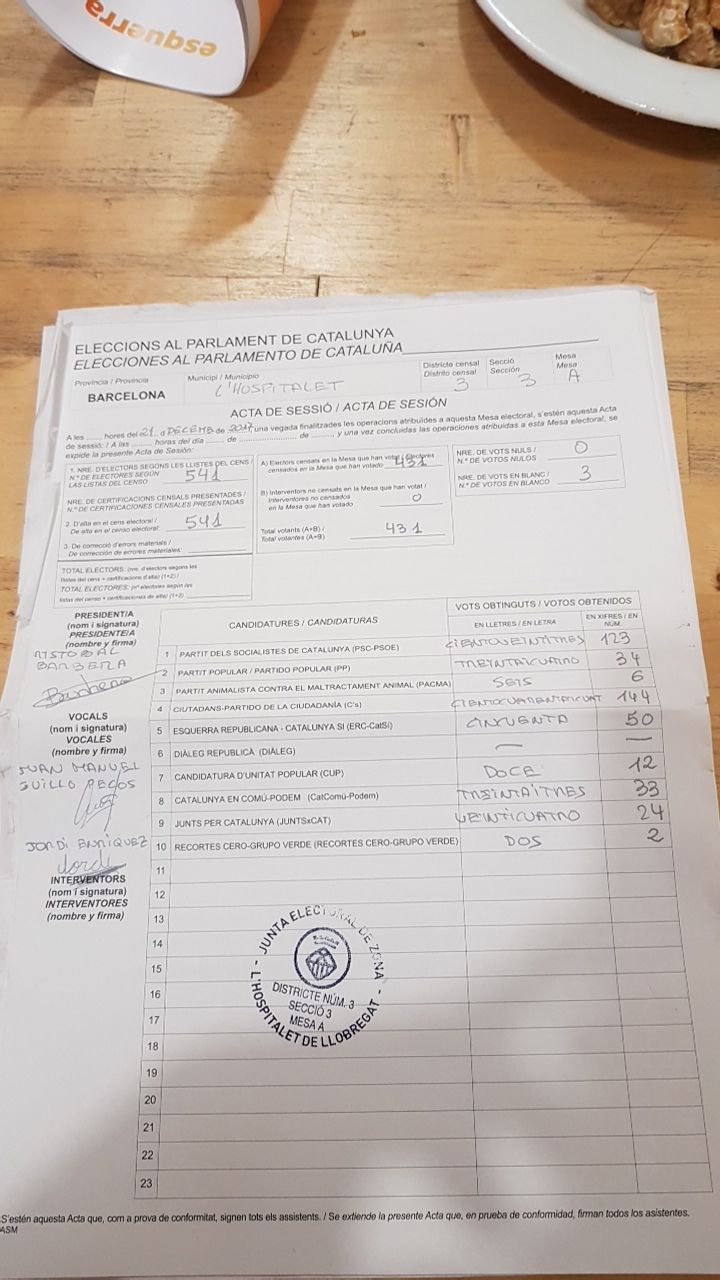 esquerra
ELECCIONS AL PARLAMENT DE CATALUNYA
ELECCIONES AL PARLAMENTO DE CATALUÑA
Província / Provincia
BARCELONA
Municipi / Municipio
L'HOSPITALET
Districte censal
Distrito censal
3
Secció
Sección
3
Mesa
Mesa
A
ACTA DE SESSIÓ / ACTA DE SESIÓN
A les ...... hores del 21, d DECEMB de 2017, una vegada finalitzades les operacions atribuïdes a aquesta Mesa electoral, s'estén aquesta Acta
de sessió: / A las ...... horas del día ...... de ...... de ...... y una vez concluidas las operaciones atribuidas a esta Mesa electoral, se
expide la presente Acta de Sesión:
1. NRE. D'ELECTORS SEGONS LES LLISTES DEL CENS /
N.º DE ELECTORES SEGÚN
LAS LISTAS DEL CENSO
541
NRE. DE CERTIFICACIONS CENSALS PRESENTADES /
N.º DE CERTIFICACIONES CENSALES PRESENTADAS
2. D'alta en el cens electoral /
De alta en el censo electoral:
541
3. De correcció d'errors materials /
De corrección de errores materiales:
TOTAL ELECTORS: (nre. d'electors segons les
llistes del cens + certificacions d'alta) (1+2) /
TOTAL ELECTORES: (nº electores según las
listas del censo + certificaciones de alta) (1+2)
A) Electors censats en la Mesa que han votat / Electores
censados en la Mesa que han votado
431
B) Interventors no censats en la Mesa que han votat /
Interventores no censados
en la Mesa que han votado
0
Total votants (A+B) /
Total votantes (A+B)
431
NRE. DE VOTS NULS /
N.º DE VOTOS NULOS
0
NRE. DE VOTS EN BLANC /
N.º DE VOTOS EN BLANCO
3
PRESIDENT/A
(nom i signatura)
PRESIDENTE/A
(nombre y firma)
BARBERA
VOCALS
(nom i signatura)
VOCALES
(nombre y firma)
JUAN MANUEL
JORDI ENRIQUEZ
Jordi
INTERVENTORS
(nom i signatura)
INTERVENTORES
(nombre y firma)
CANDIDATURES / CANDIDATURAS
VOTS OBTINGUTS / VOTOS OBTENIDOS
EN LLETRES / EN LETRA
EN XIFRES / EN NÚM.
1 PARTIT DELS SOCIALISTES DE CATALUNYA (PSC-PSOE) CIENTOVEINTITRES 123
2 PARTIT POPULAR / PARTIDO POPULAR (PP) TREINTAICUATRO 34
3 PARTIT ANIMALISTA CONTRA EL MALTRACTAMENT ANIMAL (PACMA) SEIS 6
4 CIUTADANS-PARTIDO DE LA CIUDADANÍA (C's) CIENTOCUARENTAICUAT 144
5 ESQUERRA REPUBLICANA - CATALUNYA SÍ (ERC-CatSí) CINCUENTA 50
6 DIÀLEG REPUBLICÀ (DIÀLEG) — —
7 CANDIDATURA D'UNITAT POPULAR (CUP) DOCE 12
8 CATALUNYA EN COMÚ-PODEM (CatComú-Podem) TREINTAITRES 33
9 JUNTS PER CATALUNYA (JUNTSxCAT) VEINTICUATRO 24
10 RECORTES CERO-GRUPO VERDE (RECORTES CERO-GRUPO VERDE) DOS 2
11
12
13
14
15
16
17
18
19
20
21
22
23
JUNTA ELECTORAL DE ZONA
DISTRICTE NÚM. 3
SECCIÓ 3
MESA A
- L'HOSPITALET DE LLOBREGAT -
S'estén aquesta Acta que, com a prova de conformitat, signen tots els assistents. / Se extiende la presente Acta que, en prueba de conformidad, firman todos los asistentes.
ASM